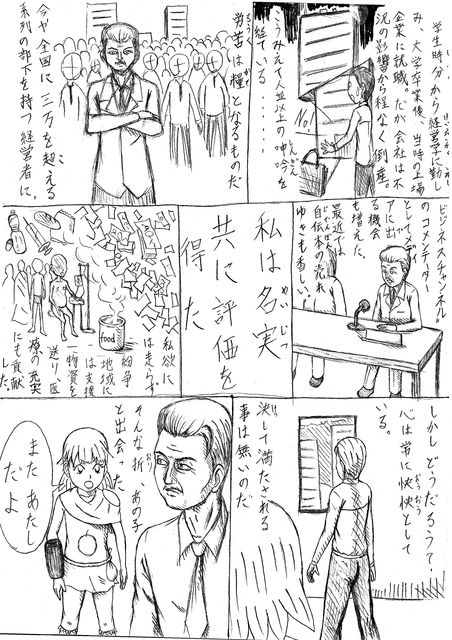 学生時分から経営学に勤し
み、大学卒業後、当時の上場
企業に就職。だが会社は不
況の影響から程なく倒産。
こうみえて人並以上の呻吟を
経ている・・・・・
労苦は糧となるものだ
今や全国に三万を超える
系列の部下を持つ経営者に。
ビジネスチャンネル
のコメンテーター
としてメディ
アに出
る機会
も増えた、
最近では
自伝本の売れ
ゆきも香しい
私は名実
めいじつ
共に評価を
得た
私欲に
は走らず
紛争
地域に
は支援
物資を
送り、医
療の充実
にも貢献
した。
food
しかしどうだろうて、
心は常に怏怏として
おうおう
いる。
決して満たされる
事は無いのだ
そんな折、あの子
おり
と出会った
また あたし
だよ